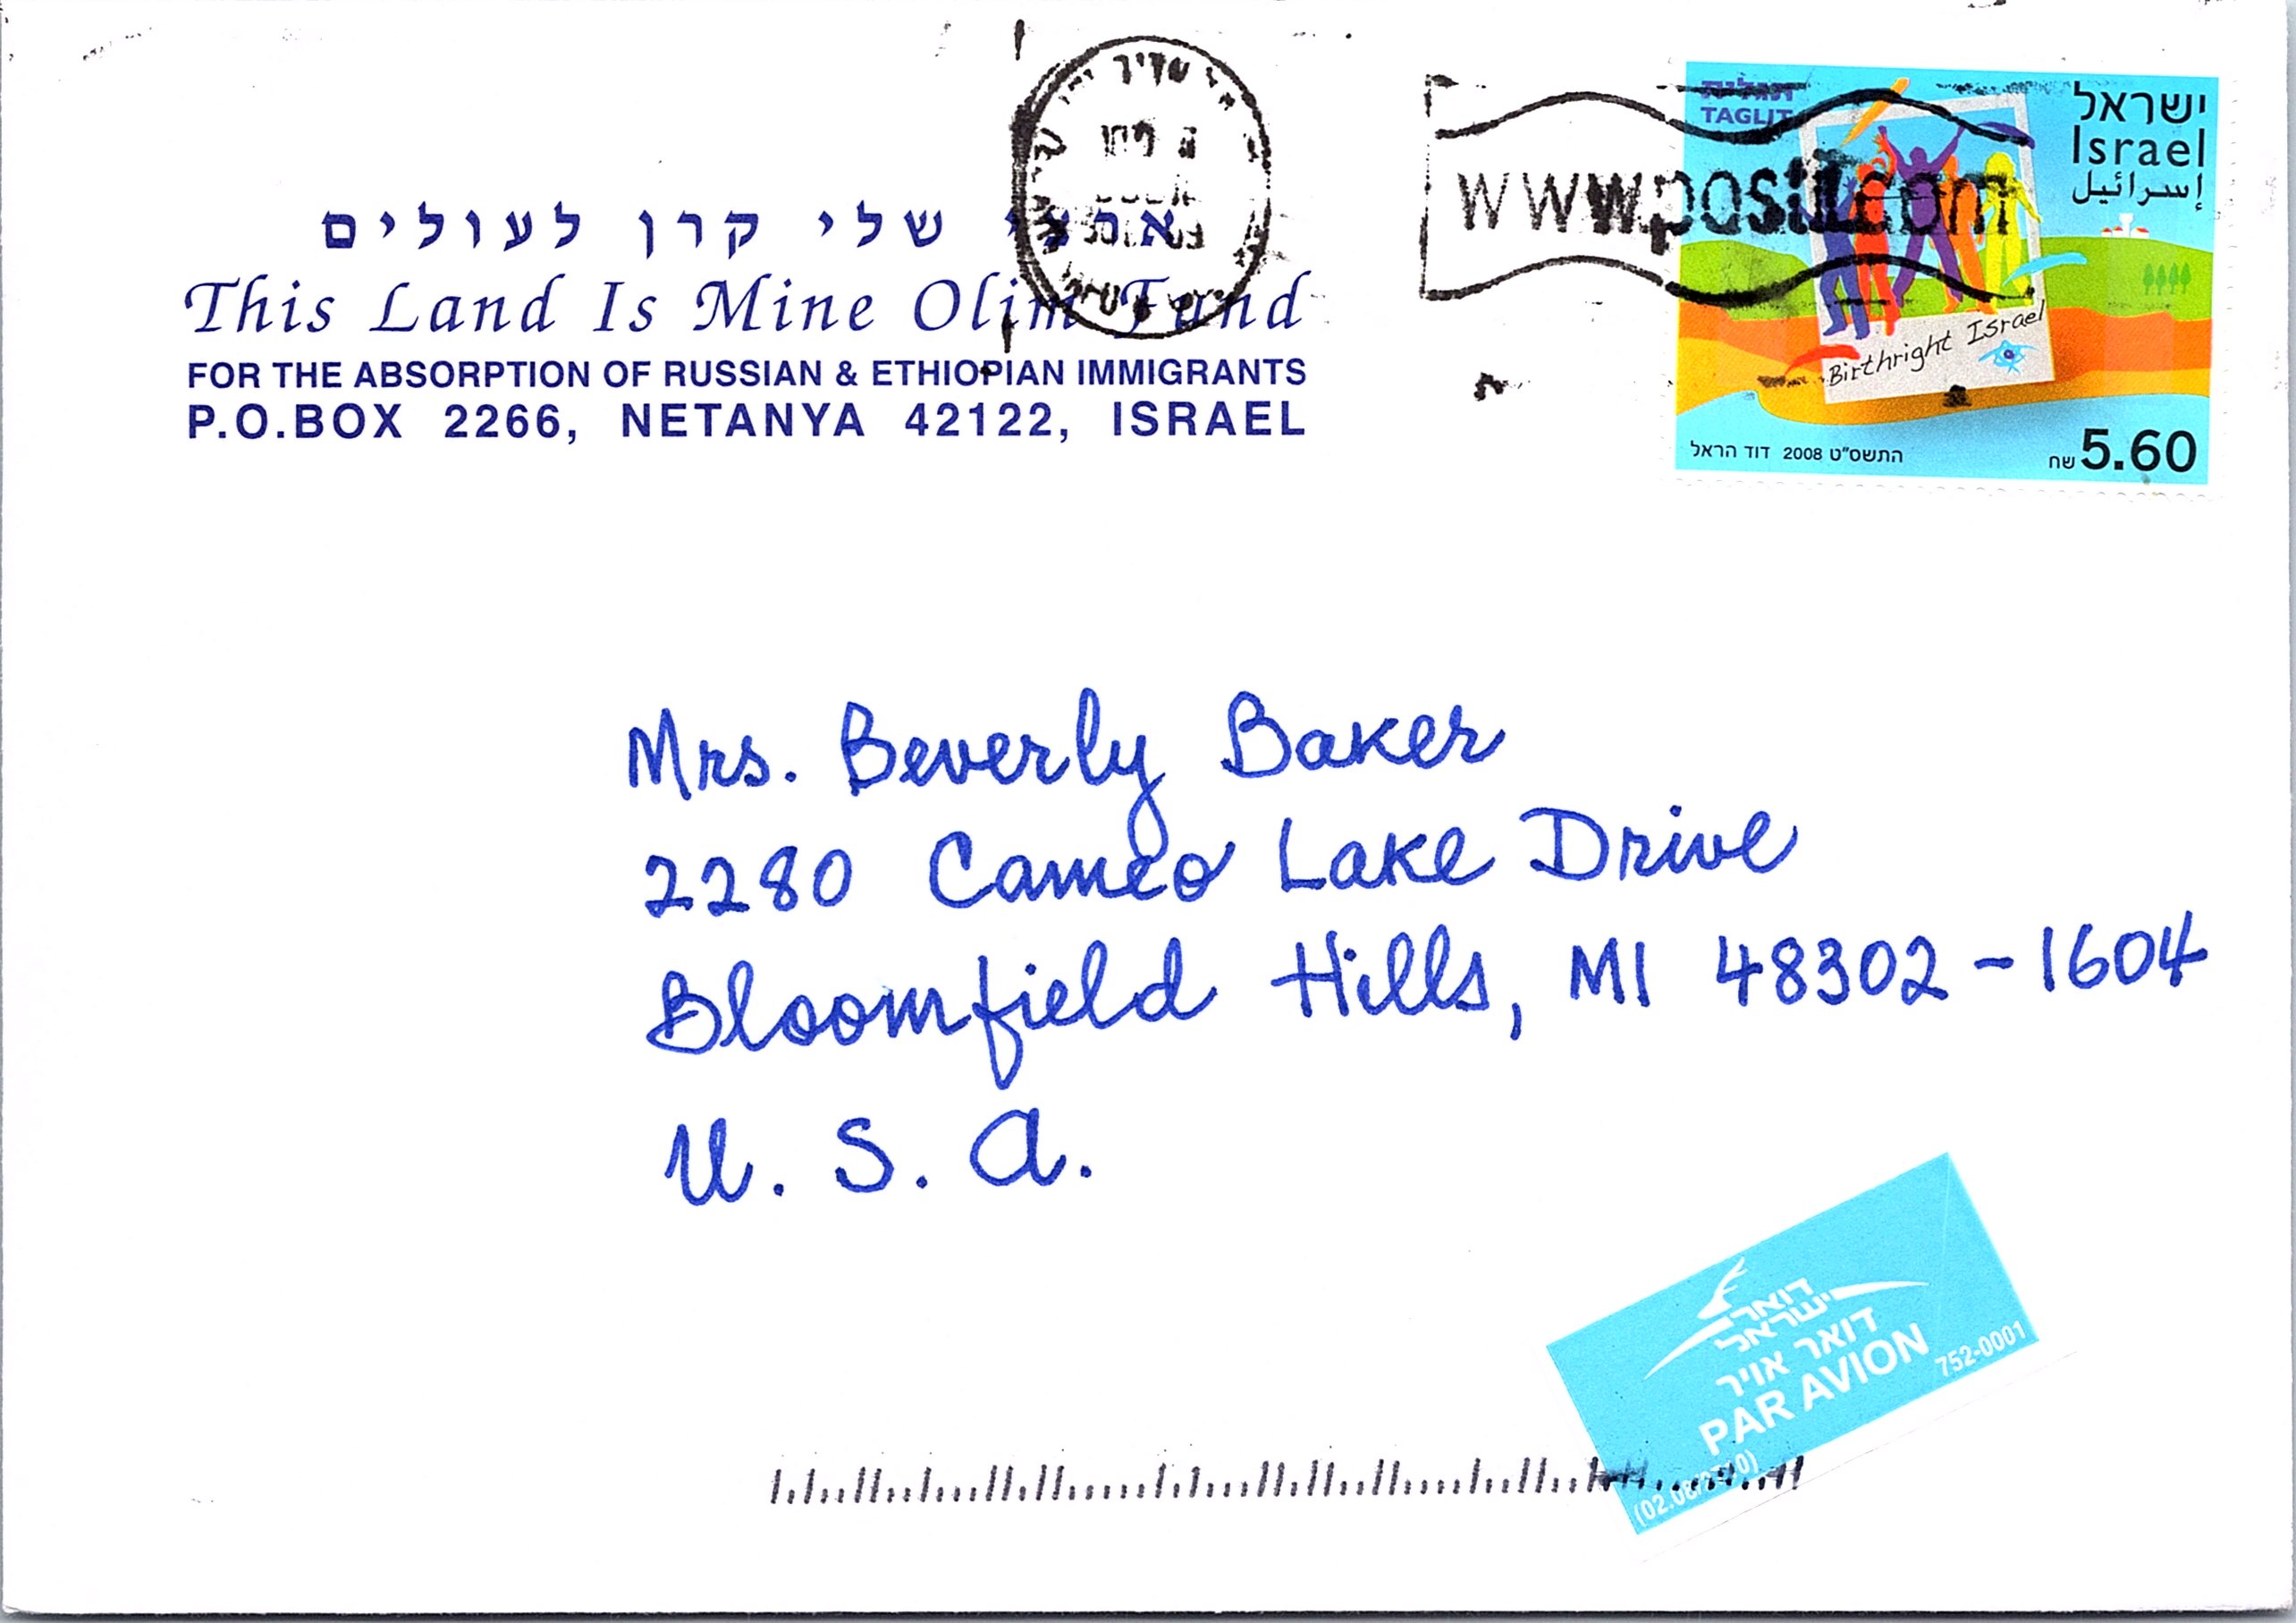 ארצי שלי קרן לעולים
This Land Is Mine Olim Fund
FOR THE ABSORPTION OF RUSSIAN & ETHIOPIAN IMMIGRANTS
P.O.BOX 2266, NETANYA 42122, ISRAEL
www.postil.com
תגלית
TAGLIT
ישראל
Israel
إسرائيل
Birthright Israel
דוד הראל 2008 התשס"ט
5.60 שח
Mrs. Beverly Baker
2280 Cameo Lake Drive
Bloomfield Hills, MI 48302-1604
U. S. A.
דואר
ישראל
דואר אויר
PAR AVION
752-0001